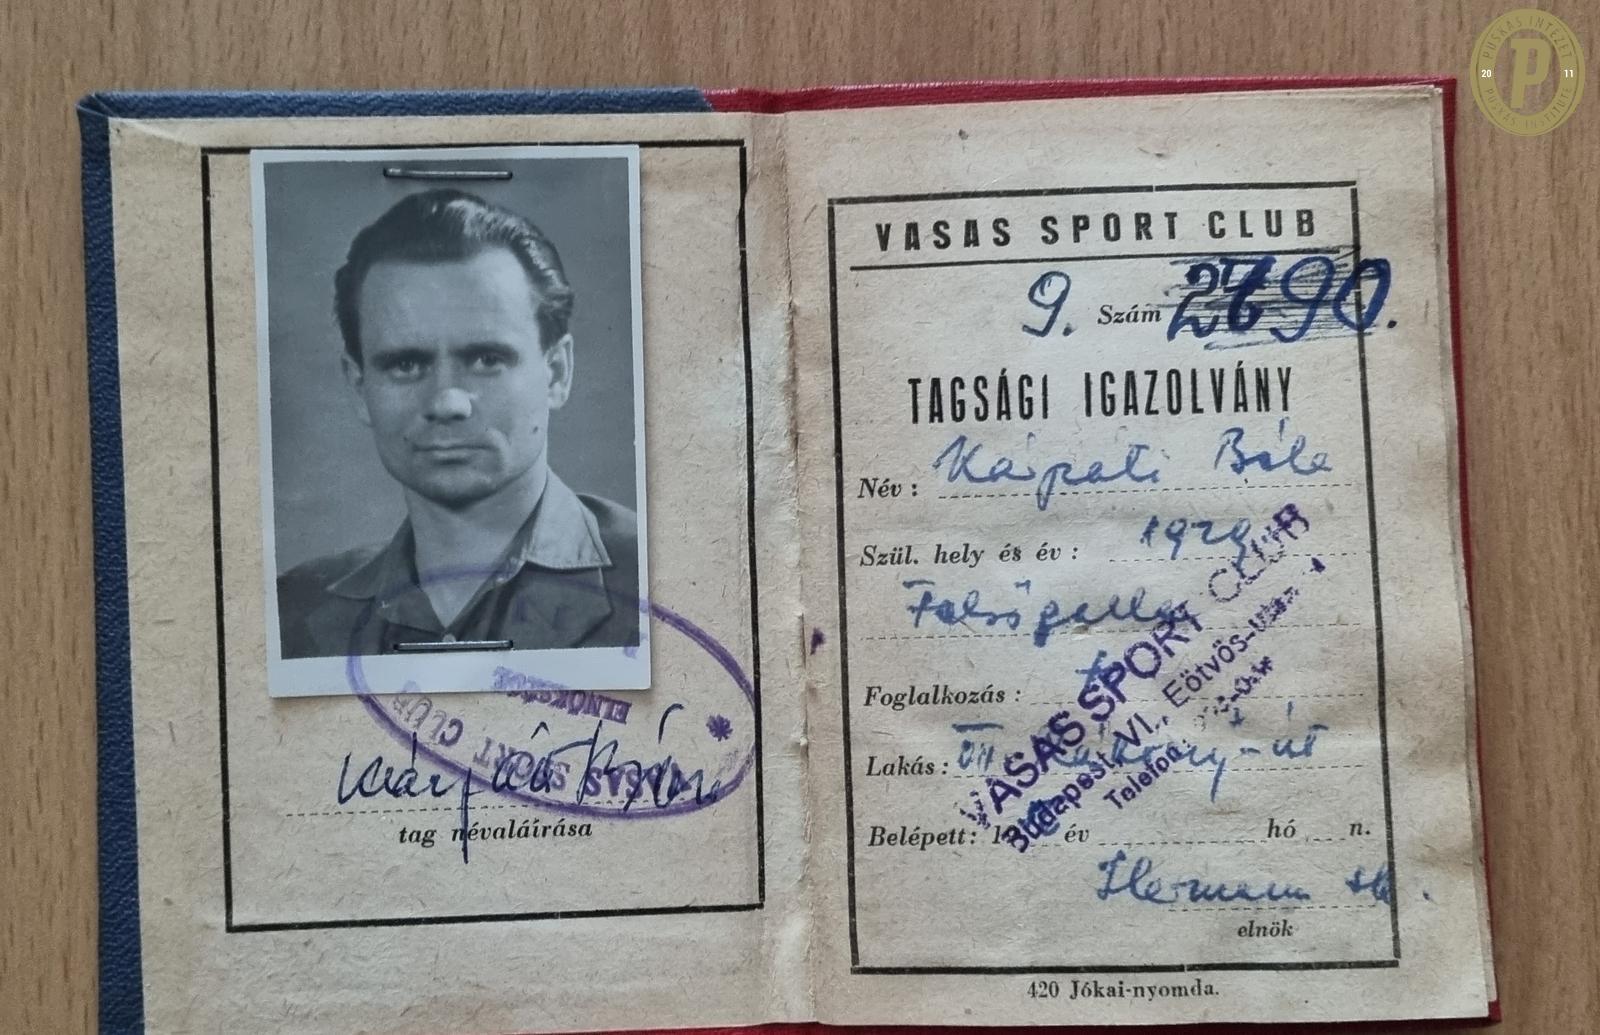 PUSKÁS INTÉZET
20 11
P
PUSKÁS INSTITUTE
VASAS SPORT CLUB
ELNÖKSÉGE
Kárpáti Béla
tag névaláírása
VASAS SPORT CLUB
9. Szám 2790.
TAGSÁGI IGAZOLVÁNY
Név: Kárpáti Béla
Szül. hely és év: 1929
Felsőgalla
Foglalkozás:
Lakás: út
Belépett: 1 év hó n.
elnök
VASAS SPORT CLUB
Budapest, VI., Eötvös-utca
Telefon:
420 Jókai-nyomda.